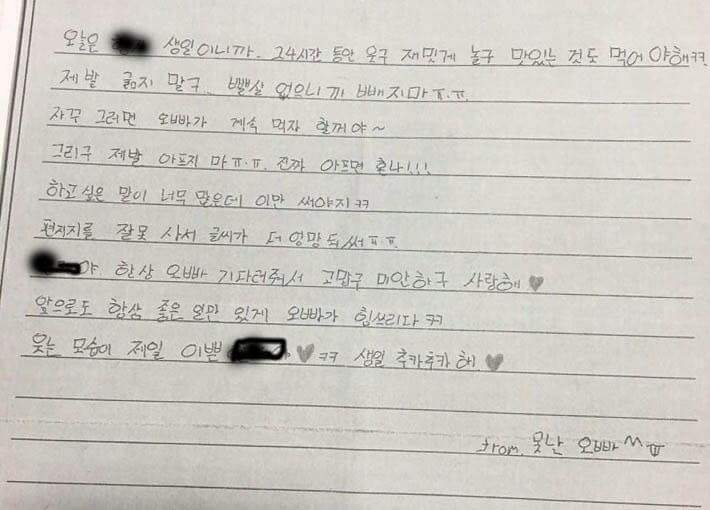 오늘은 생일이니까. 24시간 동안 웃구 재밋게 놀구 맛있는 것도 먹어야해ㅋㅋ
제발 굶지 말구 뺄살 없으니까 빼지마ㅠ.ㅠ.
자꾸 그러면 오빠가 계속 먹자 할꺼야~
그리구 제발 아프지 마ㅠ.ㅠ. 진짜 아프면 혼나!!!
하고싶은 말이 너무 많은데 이만 써야지ㅋㅋ
편지지를 잘못 사서 글씨가 더 엉망 되써ㅠㅠ.
야 항상 오빠 기다려줘서 고맙구 미안하구 사랑해♥
앞으로도 항상 좋은 일만 있게 오빠가 힘쓰리다ㅋㅋ
웃는 모습이 제일 이쁜 ♥ㅋㅋ 생일 추카추카해♥
from. 못난 오빠^^ㅠ